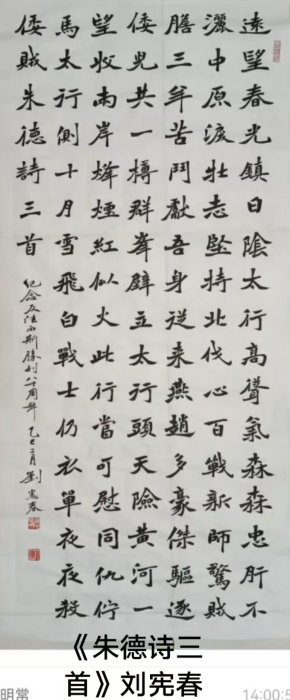 遠望春光鎮日陰太行高聳氣森森忠肝不
灑中原淚壯志堅持北伐心百戰新師驚賊
膽三年苦鬥獻吾身從來燕趙多豪傑驅逐
倭兒共一樽群峯壁立太行頭天險黃河一
望收兩岸烽煙紅似火此行當可慰同仇佇
馬太行側十月雪飛白戰士仍衣單夜夜殺
倭賊朱德詩三首
紀念反法西斯勝利八十周年 乙巳二月 劉憲春
《朱德诗三
首》刘宪春
明常 14:00:5